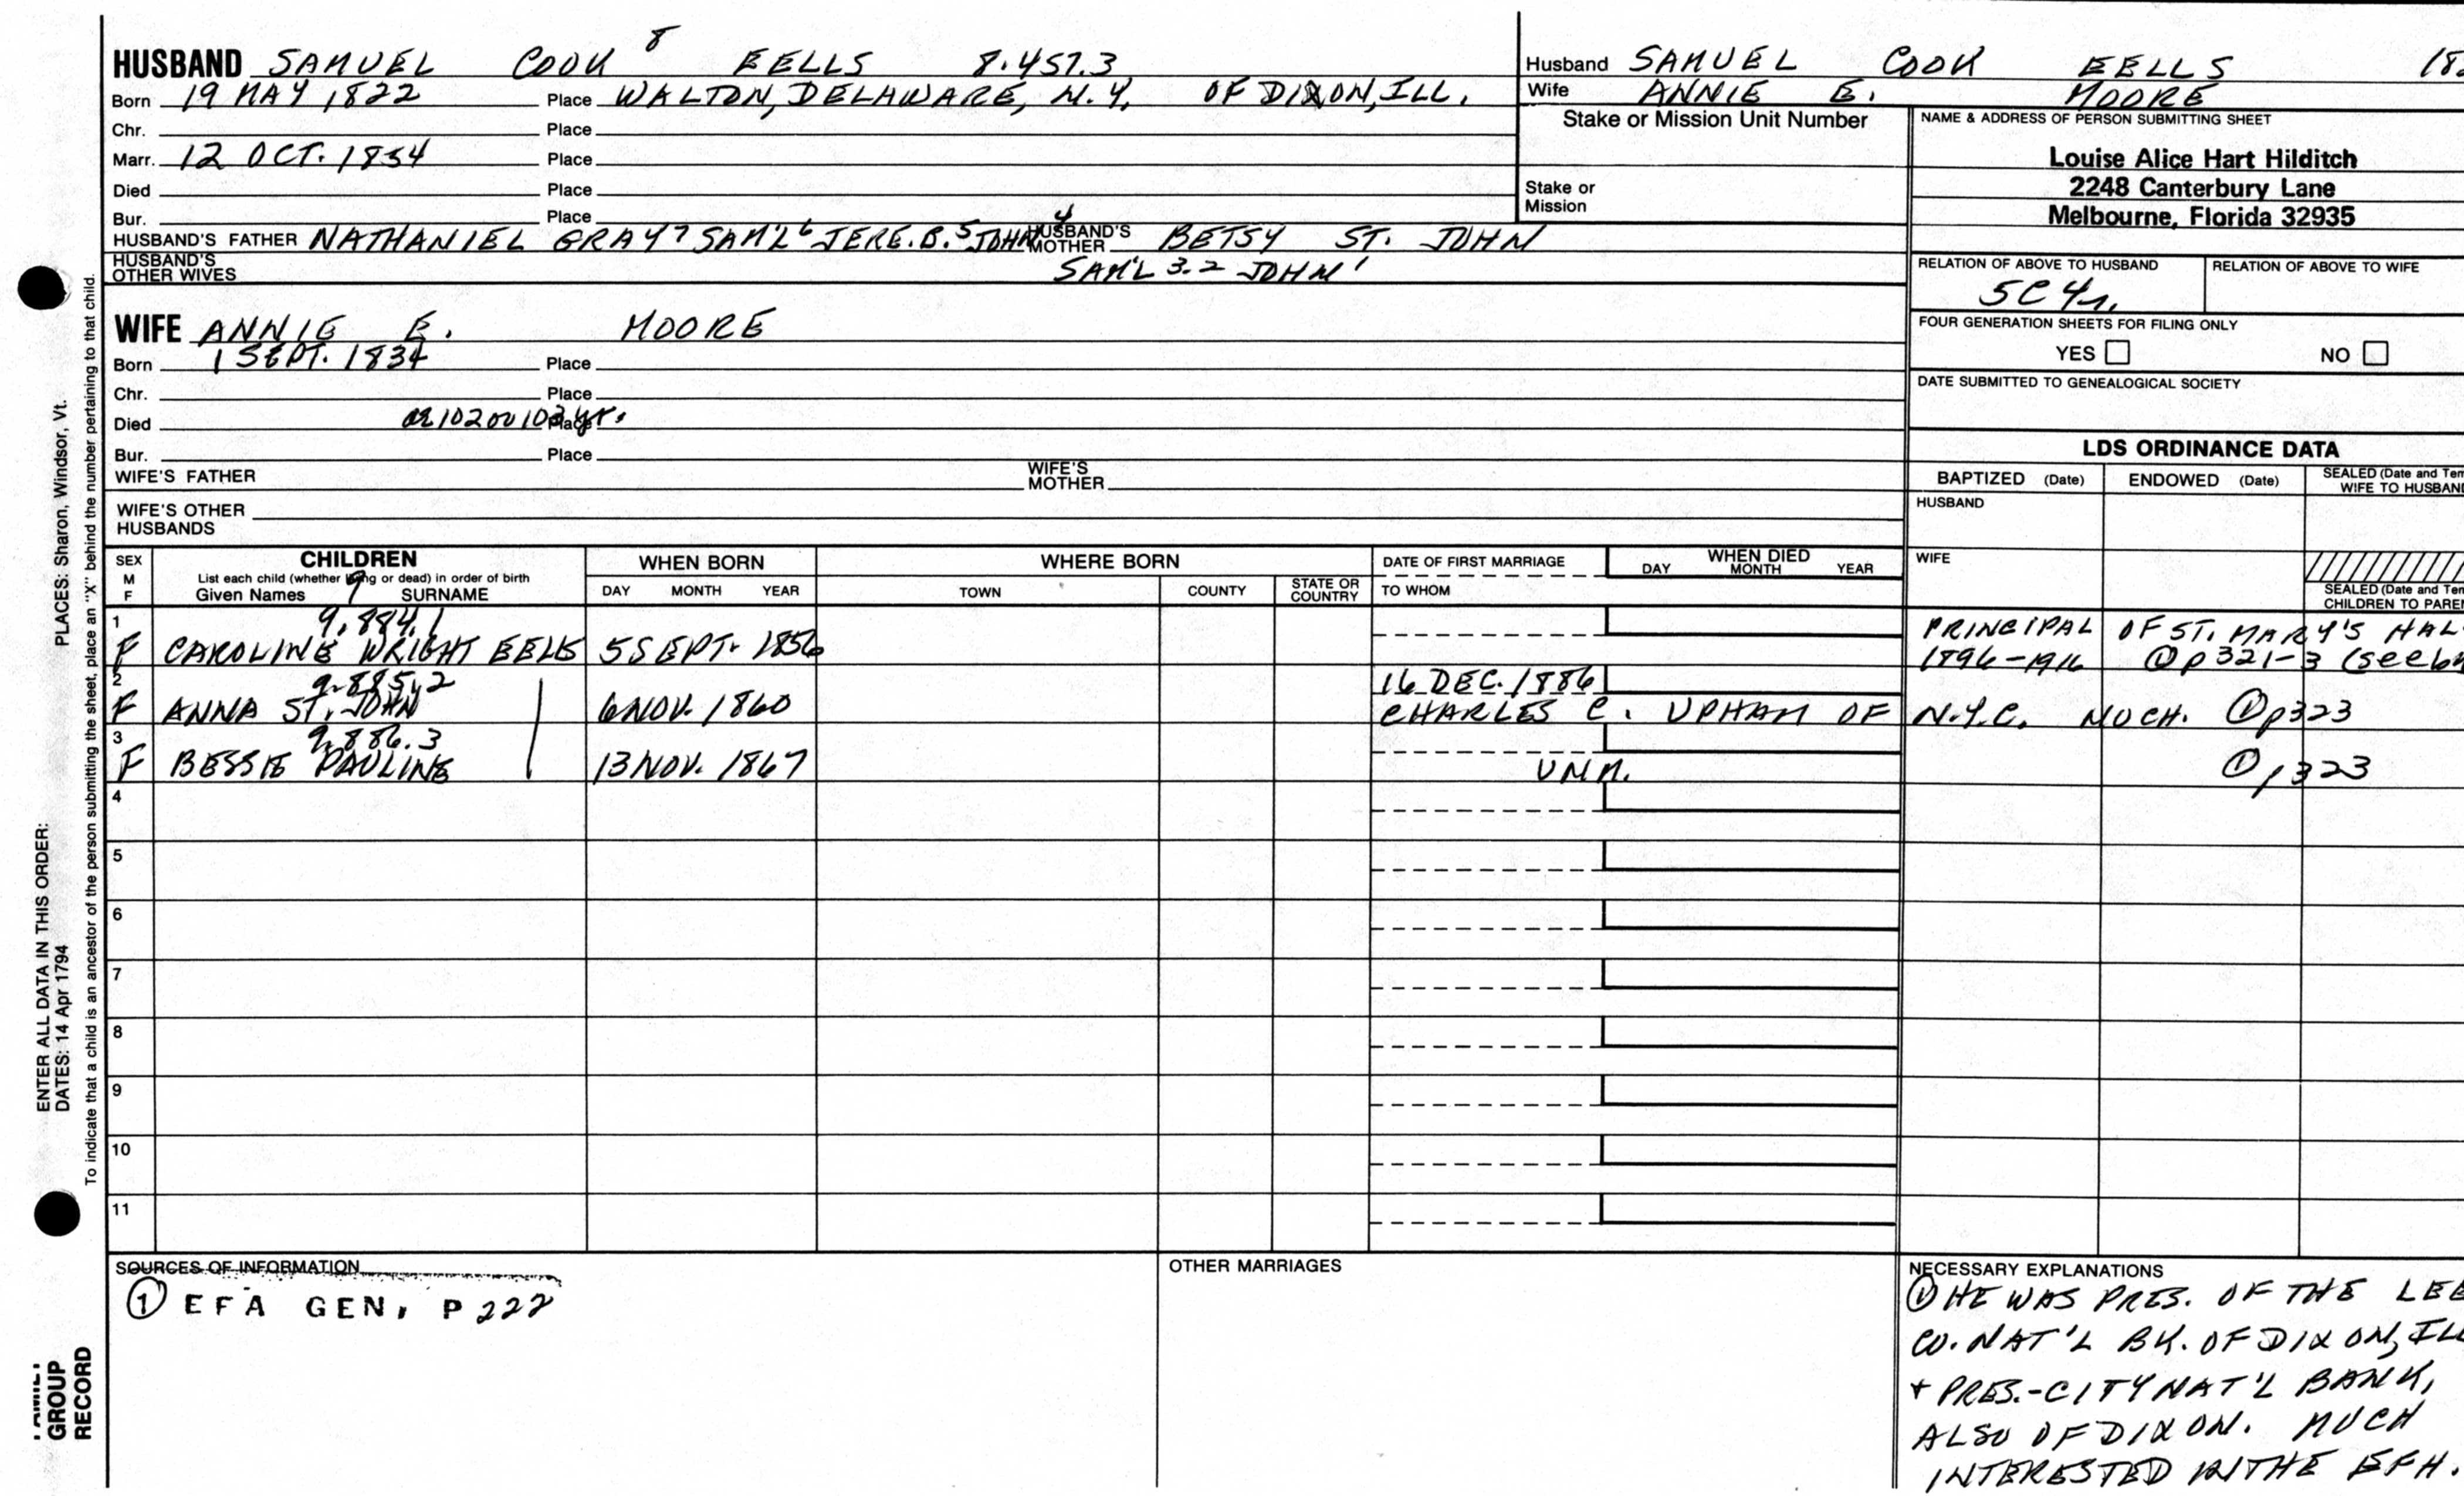 HUSBAND SAMUEL COOK 8 EELLS 8.457.3
Born 19 MAY 1822 Place WALTON, DELAWARE, N.Y. OF DIXON, ILL.
Chr. Place
Marr. 12 OCT. 1854 Place
Died Place
Bur. Place
HUSBAND'S FATHER NATHANIEL GRAY 7 SAM'L 6 JERE. B. 5 JOHN 4 HUSBAND'S MOTHER BETSY ST. JOHN
HUSBAND'S OTHER WIVES SAM'L 3.2 JOHN 1
Husband SAMUEL COOK EELLS
Wife ANNIE E. MOORE
Stake or Mission Unit Number
Stake or Mission
NAME & ADDRESS OF PERSON SUBMITTING SHEET
Louise Alice Hart Hilditch
2248 Canterbury Lane
Melbourne, Florida 32935
RELATION OF ABOVE TO HUSBAND RELATION OF ABOVE TO WIFE
5C 4r.
FOUR GENERATION SHEETS FOR FILING ONLY
YES NO
DATE SUBMITTED TO GENEALOGICAL SOCIETY
WIFE ANNIE E. MOORE
Born 1 SEPT. 1834 Place
Chr. Place
Died Place
Bur. Place
WIFE'S FATHER WIFE'S MOTHER
WIFE'S OTHER HUSBANDS
LDS ORDINANCE DATA
BAPTIZED (Date) ENDOWED (Date) SEALED (Date and Tem
WIFE TO HUSBAND
HUSBAND
WIFE
SEALED (Date and Tem
CHILDREN TO PAREN
SEX M F
CHILDREN
List each child (whether living or dead) in order of birth
Given Names 9 SURNAME
WHEN BORN
DAY MONTH YEAR
WHERE BORN
TOWN COUNTY STATE OR COUNTRY
DATE OF FIRST MARRIAGE
TO WHOM
WHEN DIED
DAY MONTH YEAR
1 9.884.1
F CAROLINE WRIGHT EELLS 5 SEPT. 1856
PRINCIPAL OF ST. MARY'S HAL
1896-1916 ① p321-3
2 9.885.2 16 DEC. 1886
F ANNA ST. JOHN 6 NOV. 1860 CHARLES C. UPHAM OF N.Y.C. MUCH. ① p323
3 9.886.3
F BESSIE PAULINE 13 NOV. 1867 UNM. ① p323
4
5
6
7
8
9
10
11
SOURCES OF INFORMATION
① EFA GEN, P 222
OTHER MARRIAGES
NECESSARY EXPLANATIONS
① HE WAS PRES. OF THE LEE
CO. NAT'L BK. OF DIXON, ILL
+ PRES.-CITY NAT'L BANK,
ALSO OF DIXON. MUCH
INTERESTED IN THE EFH.
ENTER ALL DATA IN THIS ORDER:
DATES: 14 Apr 1794 PLACES: Sharon, Windsor, Vt.
To indicate that a child is an ancestor of the person submitting the sheet, place an "X" behind the number pertaining to that child.
FAMILY
GROUP
RECORD